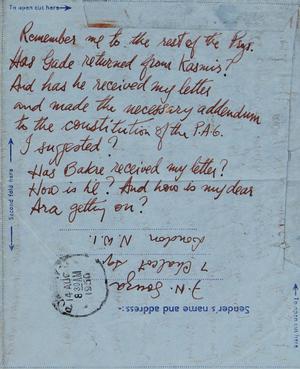 To open cut here
Remember me to the rest of the Pngs.
Has Gade returned from Kasmir?
And has he received my letter
and made the necessary addendum
to the constitution of the P.A.G.
I suggested?
Has Bakre received my letter?
How is he? And how is my dear
Ara getting on?
Second fold here
Sender's name and address:-
F. N. Souza
7 Chalcot Sq.
London N.W.1.
14 AUG
8 30AM
1950
To open cut here